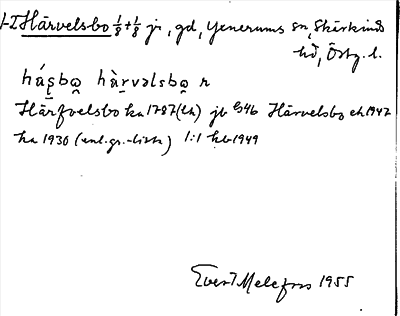 1-2 Härvelsbo 1/8 + 1/8 jr, gd, Yenerums sn, Skärkinds
hd, Östg. l.
hàrvəlsbo r
Härfvelsbo ka 1787 (ls) jb 1346 Härvelsbo ek 1947
ha 1930 (enl. gr.-lista) 1:1 hb 1949
Evert Melefors 1955